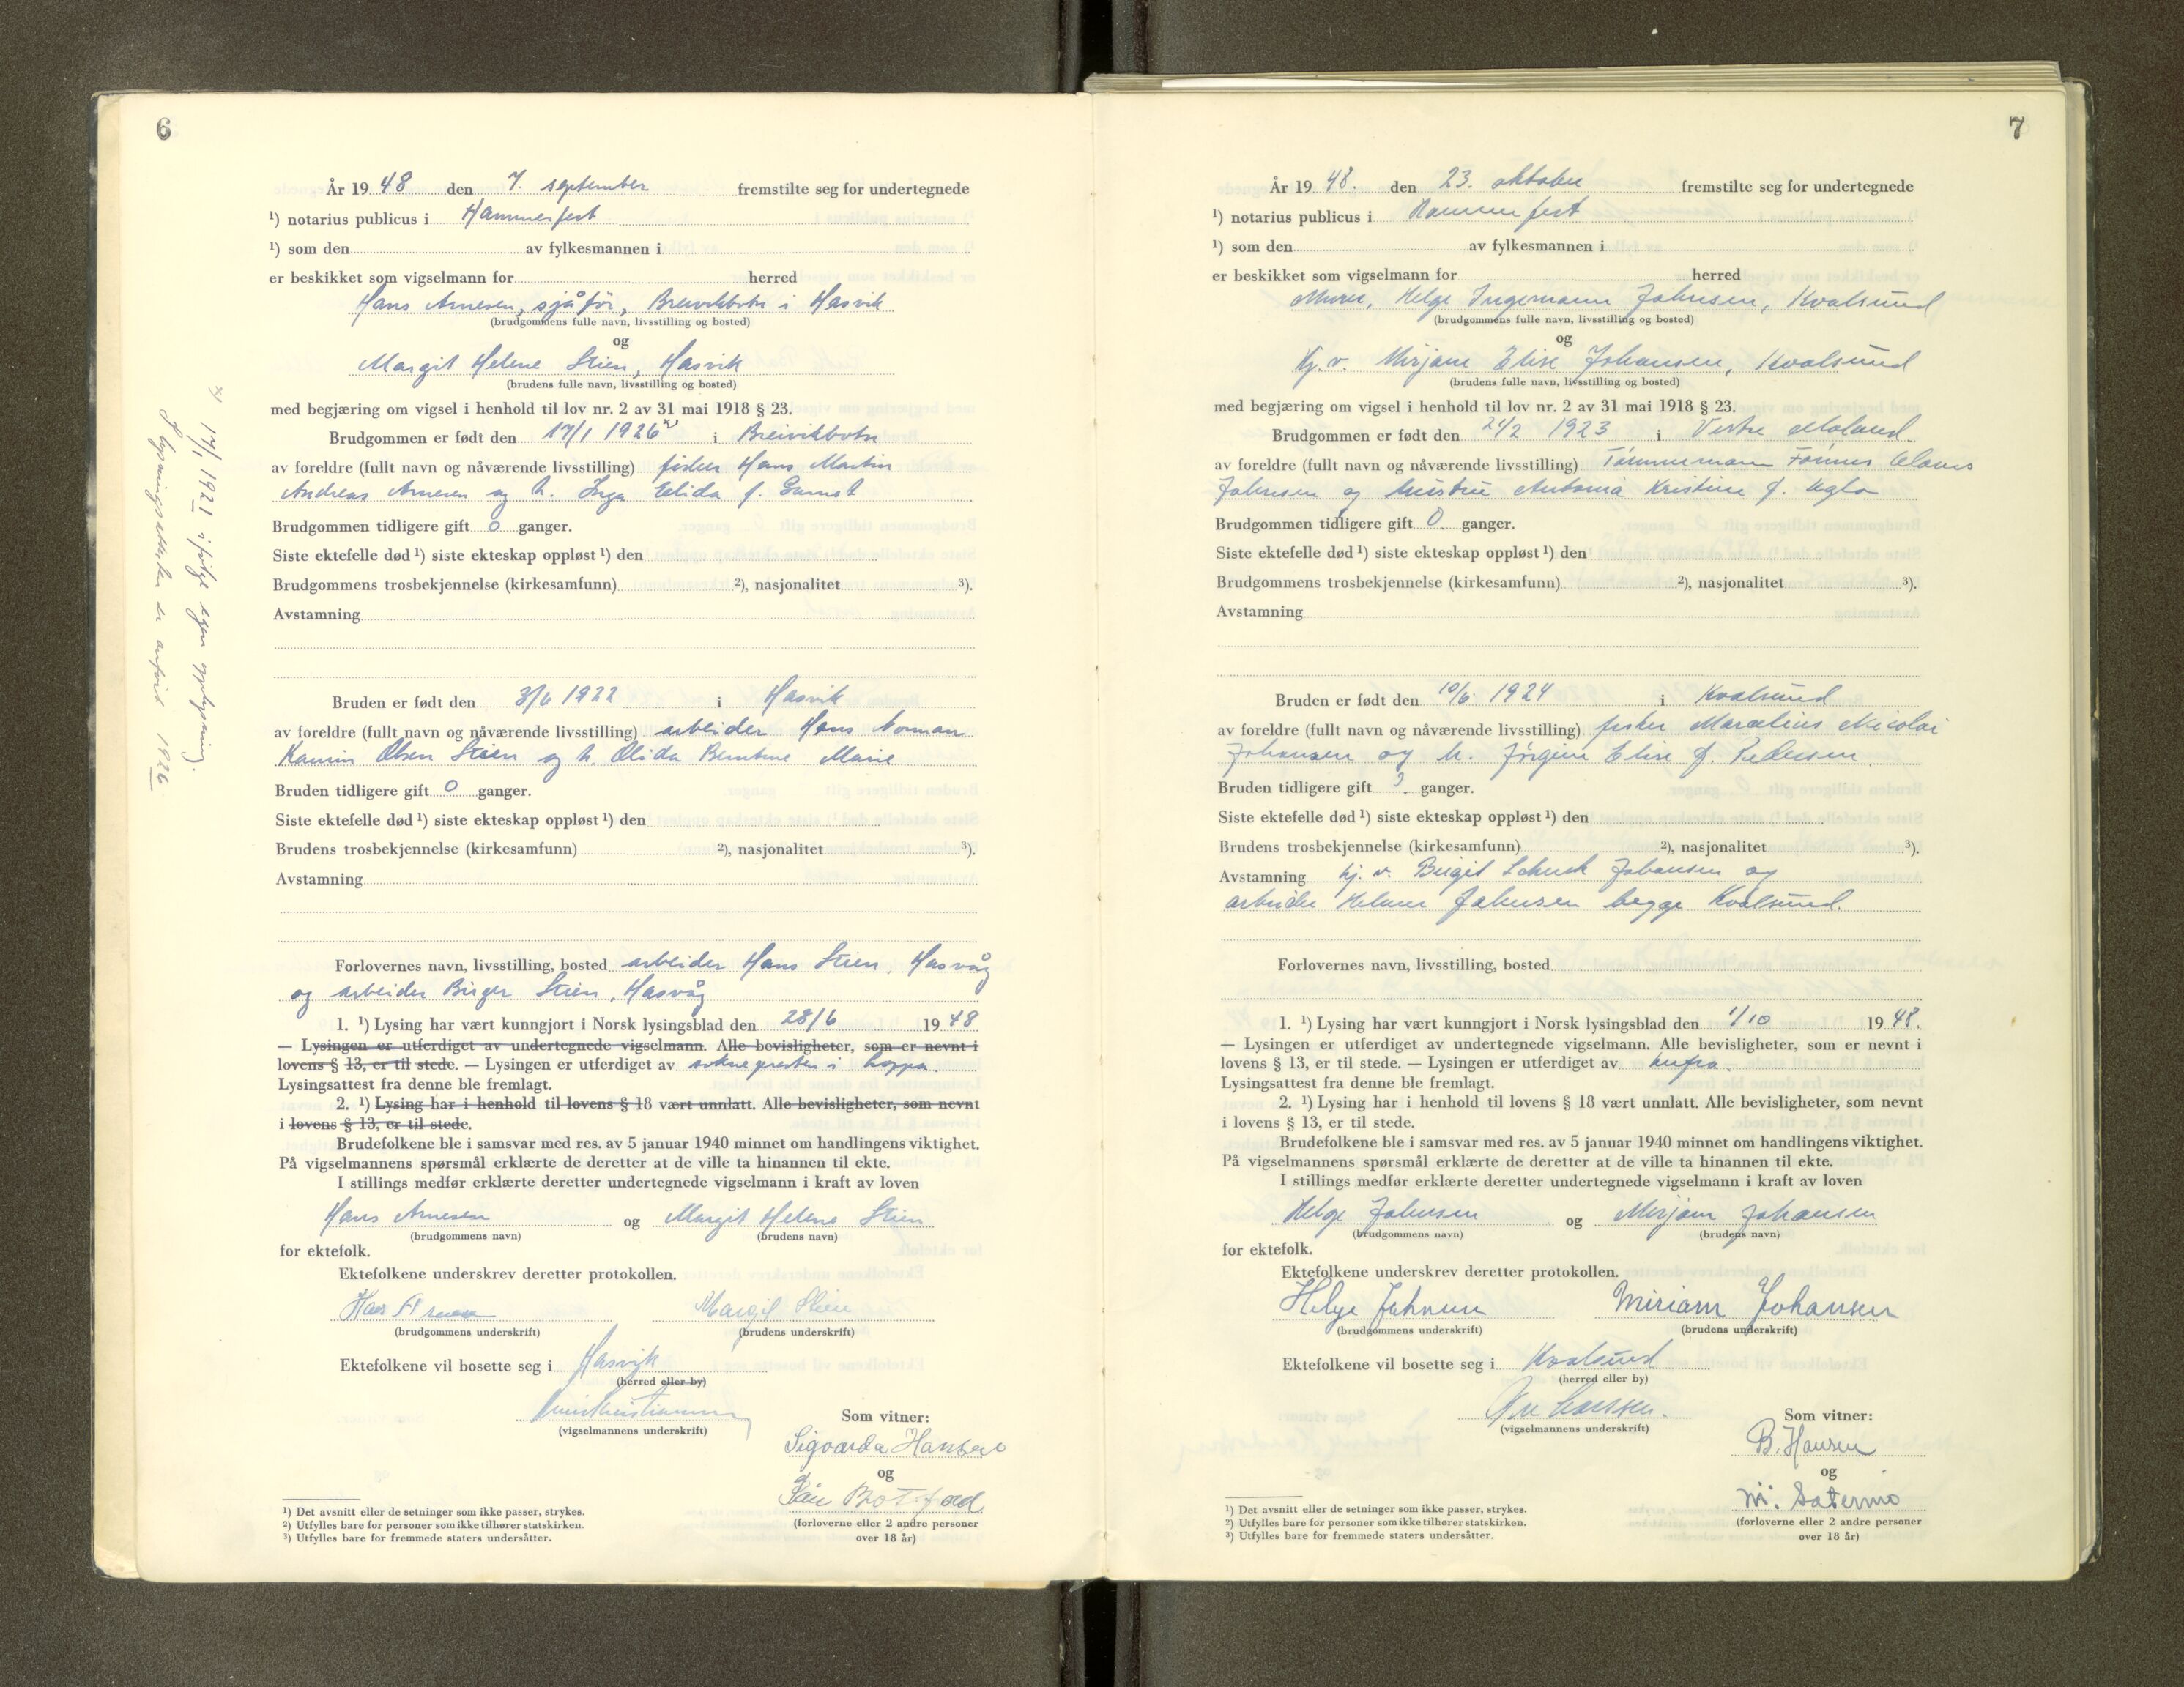 6
År 19 48 den 7. september fremstilte seg for undertegnede
¹) notarius publicus i Hammerfest
¹) som den av fylkesmannen i
er beskikket som vigselmann for herred
Hans Arnesen, sjåfør, Breivikbotn i Hasvik
(brudgommens fulle navn, livsstilling og bosted)
og
Margit Helene Stien, Hasvik
(brudens fulle navn, livsstilling og bosted)
med begjæring om vigsel i henhold til lov nr. 2 av 31 mai 1918 § 23.
Brudgommen er født den 17/1 1926 x) i Breivikbotn
av foreldre (fullt navn og nåværende livsstilling) fisker Hans Martin
Andreas Arnesen og h. Inga Elida f.
Brudgommen tidligere gift 0 ganger.
Siste ektefelle død ¹) siste ekteskap oppløst ¹) den
Brudgommens trosbekjennelse (kirkesamfunn) ²), nasjonalitet ³).
Avstamning
Bruden er født den 3/6 1922 i Hasvik
av foreldre (fullt navn og nåværende livsstilling) arbeider Hans Norman
Olsen Stien og h. Olida Berntine Marie
Bruden tidligere gift 0 ganger.
Siste ektefelle død ¹) siste ekteskap oppløst ¹) den
Brudens trosbekjennelse (kirkesamfunn) ²), nasjonalitet ³).
Avstamning
Forlovernes navn, livsstilling, bosted arbeider Hans Stien, Hasvåg
og arbeider Birger Stien, Hasvåg
1. ¹) Lysing har vært kunngjort i Norsk lysingsblad den 28/6 19 48
— Lysingen er utferdiget av undertegnede vigselmann. Alle bevisligheter, som er nevnt i
lovens § 13, er til stede. — Lysingen er utferdiget av soknepresten i Loppa.
Lysingsattest fra denne ble fremlagt.
2. ¹) Lysing har i henhold til lovens § 18 vært unnlatt. Alle bevisligheter, som nevnt
i lovens § 13, er til stede.
Brudefolkene ble i samsvar med res. av 5 januar 1940 minnet om handlingens viktighet.
På vigselmannens spørsmål erklærte de deretter at de ville ta hinannen til ekte.
I stillings medfør erklærte deretter undertegnede vigselmann i kraft av loven
Hans Arnesen og Margit Helene Stien
(brudgommens navn) (brudens navn)
for ektefolk.
Ektefolkene underskrev deretter protokollen.
Hans Arnesen Margit Stien
(brudgommens underskrift) (brudens underskrift)
Ektefolkene vil bosette seg i Hasvik
(herred eller by)
(vigselmannens underskrift)
Som vitner:
Sigvarda Hansen
og
(forloverne eller 2 andre personer
over 18 år)
¹) Det avsnitt eller de setninger som ikke passer, strykes.
²) Utfylles bare for personer som ikke tilhører statskirken.
³) Utfylles bare for fremmede staters undersåtter.
x) 17/1 1921 ifølge egen opplysning.
I lysningsattesten er anført 1926
7
År 19 48. den 23. oktober fremstilte seg for undertegnede
¹) notarius publicus i Hammerfest
¹) som den av fylkesmannen i
er beskikket som vigselmann for herred
Murer, Helge Ingemann Johnsen, Kvalsund
(brudgommens fulle navn, livsstilling og bosted)
og
Hj. v. Mirjam Elise Johansen, Kvalsund
(brudens fulle navn, livsstilling og bosted)
med begjæring om vigsel i henhold til lov nr. 2 av 31 mai 1918 § 23.
Brudgommen er født den 24/2 1923 i Vestre Moland.
av foreldre (fullt navn og nåværende livsstilling) Tømmermann Tønnes
Johnsen og hustru Antonia Kristine f. Uglo
Brudgommen tidligere gift 0. ganger.
Siste ektefelle død ¹) siste ekteskap oppløst ¹) den
Brudgommens trosbekjennelse (kirkesamfunn) ²), nasjonalitet ³).
Avstamning
Bruden er født den 10/6 1924 i Kvalsund
av foreldre (fullt navn og nåværende livsstilling) fisker Marcelius Nicolai
Johansen og h. Jørgine Elise f. Pedersen.
Bruden tidligere gift ganger.
Siste ektefelle død ¹) siste ekteskap oppløst ¹) den
Brudens trosbekjennelse (kirkesamfunn) ²), nasjonalitet ³).
Avstamning hj. v. Birgit Johansen og
arbeider Helmer Johnsen begge Kvalsund.
Forlovernes navn, livsstilling, bosted
1. ¹) Lysing har vært kunngjort i Norsk lysingsblad den 1/10 19 48.
— Lysingen er utferdiget av undertegnede vigselmann. Alle bevisligheter, som er nevnt i
lovens § 13, er til stede. — Lysingen er utferdiget av herfra.
Lysingsattest fra denne ble fremlagt.
2. ¹) Lysing har i henhold til lovens § 18 vært unnlatt. Alle bevisligheter, som nevnt
i lovens § 13, er til stede.
Brudefolkene ble i samsvar med res. av 5 januar 1940 minnet om handlingens viktighet.
På vigselmannens spørsmål erklærte de deretter at de ville ta hinannen til ekte.
I stillings medfør erklærte deretter undertegnede vigselmann i kraft av loven
Helge Johnsen og Mirjam Johansen
(brudgommens navn) (brudens navn)
for ektefolk.
Ektefolkene underskrev deretter protokollen.
Helge Johnsen Miriam Johansen
(brudgommens underskrift) (brudens underskrift)
Ektefolkene vil bosette seg i Kvalsund
(herred eller by)
(vigselmannens underskrift)
Som vitner:
B. Hansen
og
M. Satermo
(forloverne eller 2 andre personer
over 18 år)
¹) Det avsnitt eller de setninger som ikke passer, strykes.
²) Utfylles bare for personer som ikke tilhører statskirken.
³) Utfylles bare for fremmede staters undersåtter.